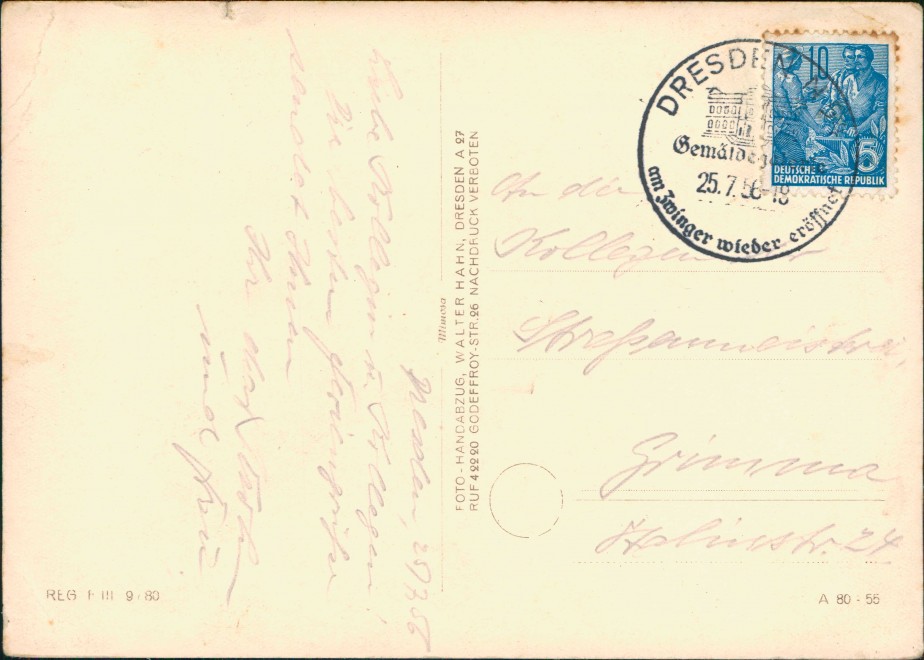 DRESDEN
Gemäldegalerie
25.7.56-18
am Zwinger wieder eröffnet
10
5
DEUTSCHE
DEMOKRATISCHE REPUBLIK
An die
Kollegen der
Straßenmeisterei
Grimma
24
A 80 - 55
Mimosa
FOTO-HANDABZUG, WALTER HAHN, DRESDEN A 27
RUF 42220 GODEFFROY-STR.26 NACHDRUCK VERBOTEN
25.7.56
Liebe Kolleginnen u. Kollegen!
Die besten
sendet Ihnen
Ihr Max
und Frau
REG I III 9/80